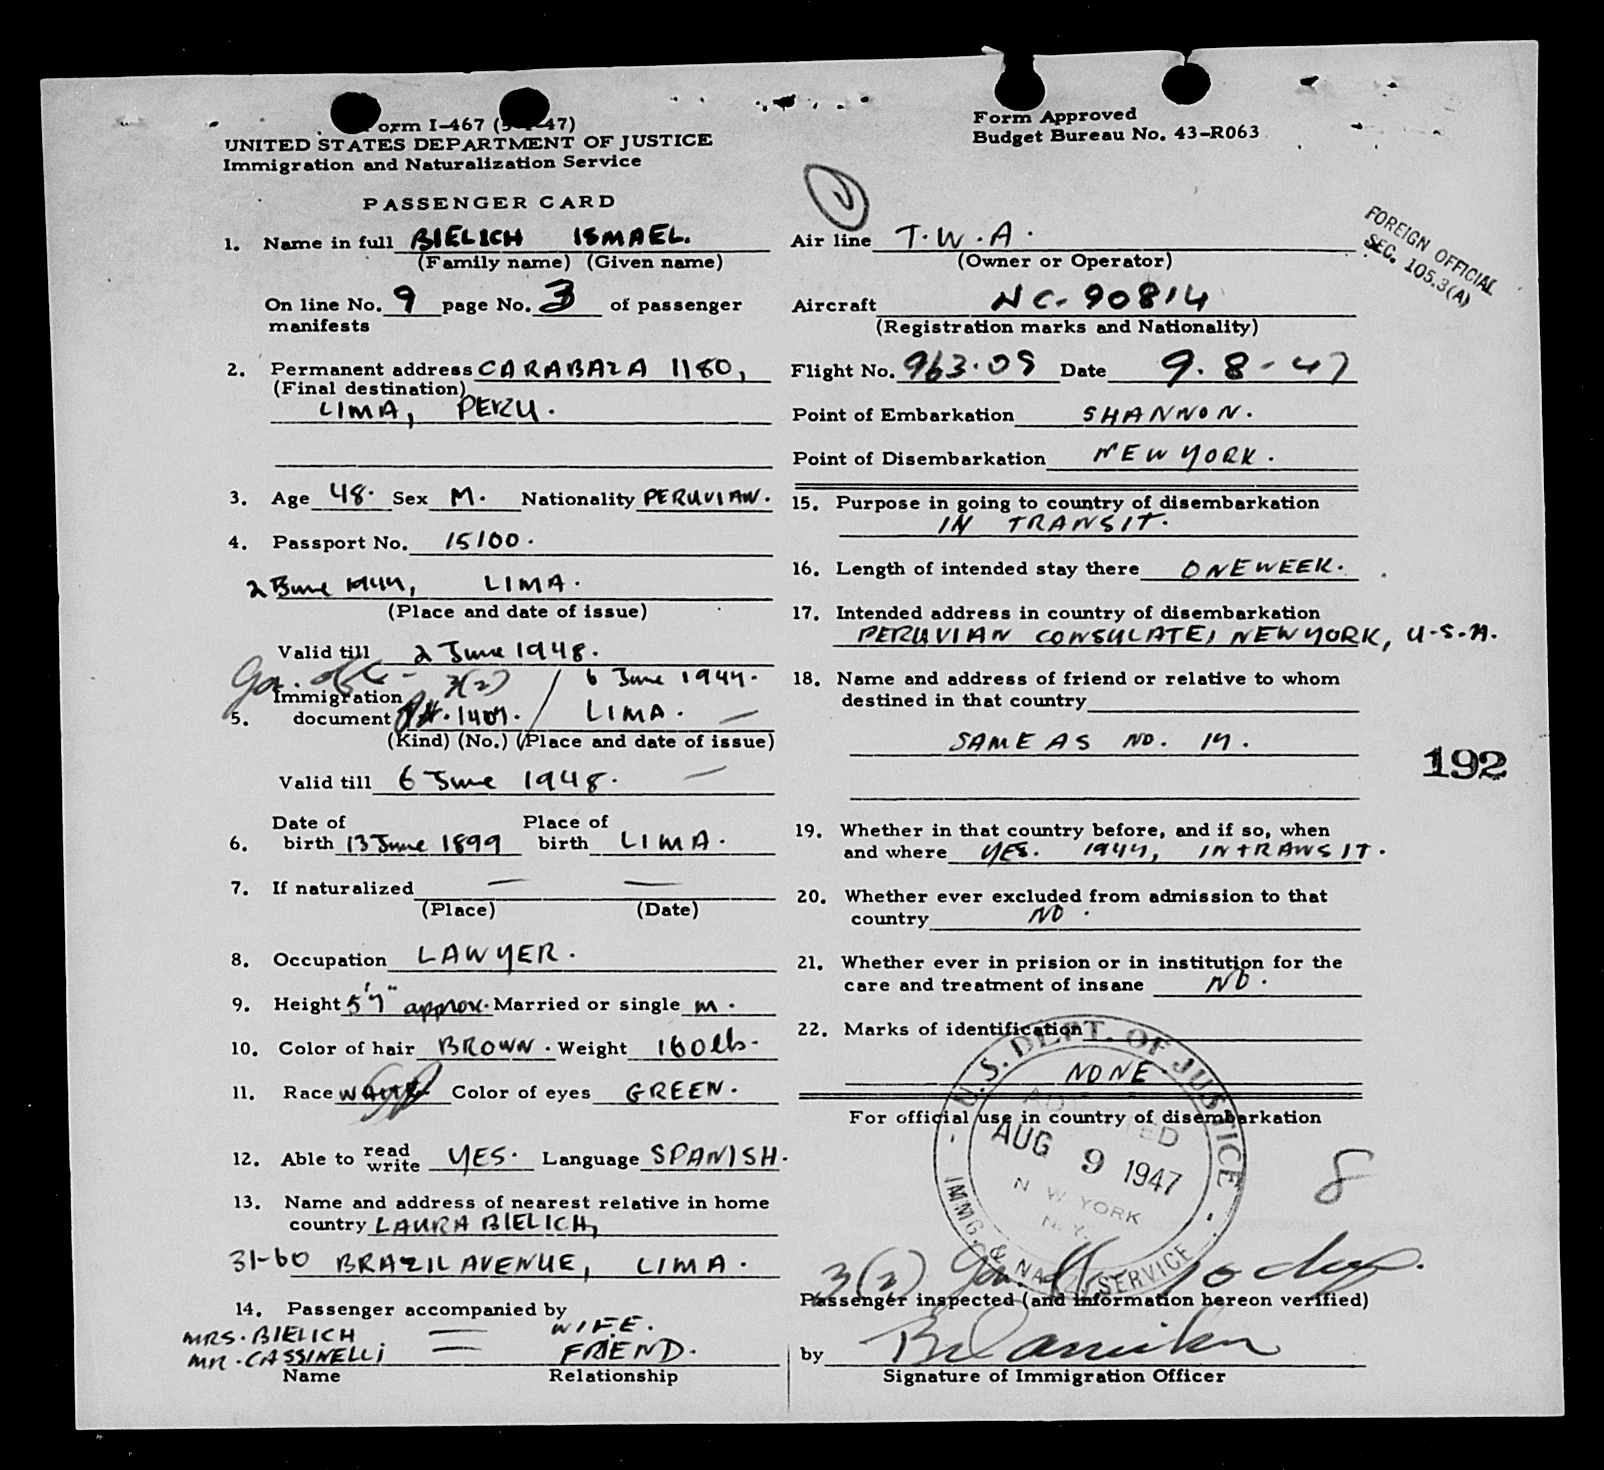 Form I-467 (5-1-47)
UNITED STATES DEPARTMENT OF JUSTICE
Immigration and Naturalization Service
PASSENGER CARD
1. Name in full BIELICH ISMAEL.
(Family name) (Given name)
On line No. 9 page No. 3 of passenger
manifests
2. Permanent address CARABAZA 1180,
(Final destination)
LIMA, PERU.
3. Age 48. Sex M. Nationality PERUVIAN.
4. Passport No. 15100.
2 June 1947, LIMA.
(Place and date of issue)
Valid till 2 June 1948.
3(2) 6 June 1947.
Immigration
5. document 1407. / LIMA. —
(Kind) (No.) (Place and date of issue)
Valid till 6 June 1948. —
Date of Place of
6. birth 13 June 1899 birth LIMA.
7. If naturalized — —
(Place) (Date)
8. Occupation LAWYER.
9. Height 5'7" approx. Married or single M.
10. Color of hair BROWN. Weight 160 lb.
11. Race WHITE Color of eyes GREEN.
12. Able to read write YES. Language SPANISH.
13. Name and address of nearest relative in home
country LAURA BIELICH,
31-60 BRAZIL AVENUE, LIMA.
14. Passenger accompanied by
MRS. BIELICH — WIFE.
MR. CASSINELLI — FRIEND.
Name Relationship
Form Approved
Budget Bureau No. 43-R063
Air line T.W.A.
(Owner or Operator)
FOREIGN OFFICIAL
SEC. 105.3(A)
Aircraft NC-90814
(Registration marks and Nationality)
Flight No. 963.09 Date 9.8-47
Point of Embarkation SHANNON.
Point of Disembarkation NEW YORK.
15. Purpose in going to country of disembarkation
IN TRANSIT.
16. Length of intended stay there ONE WEEK.
17. Intended address in country of disembarkation
PERUVIAN CONSULATE, NEW YORK, U.S.A.
18. Name and address of friend or relative to whom
destined in that country
SAME AS NO. 17.
192
19. Whether in that country before, and if so, when
and where YES. 1947, IN TRANSIT.
20. Whether ever excluded from admission to that
country NO.
21. Whether ever in prision or in institution for the
care and treatment of insane NO.
22. Marks of identification
NONE.
For official use in country of disembarkation
U.S. DEPT. OF JUSTICE
ADMITTED
AUG 9 1947
NEW YORK
N.Y.
IMMG. & NATZ. SERVICE
8
3(2)
Passenger inspected (and information hereon verified)
by
Signature of Immigration Officer